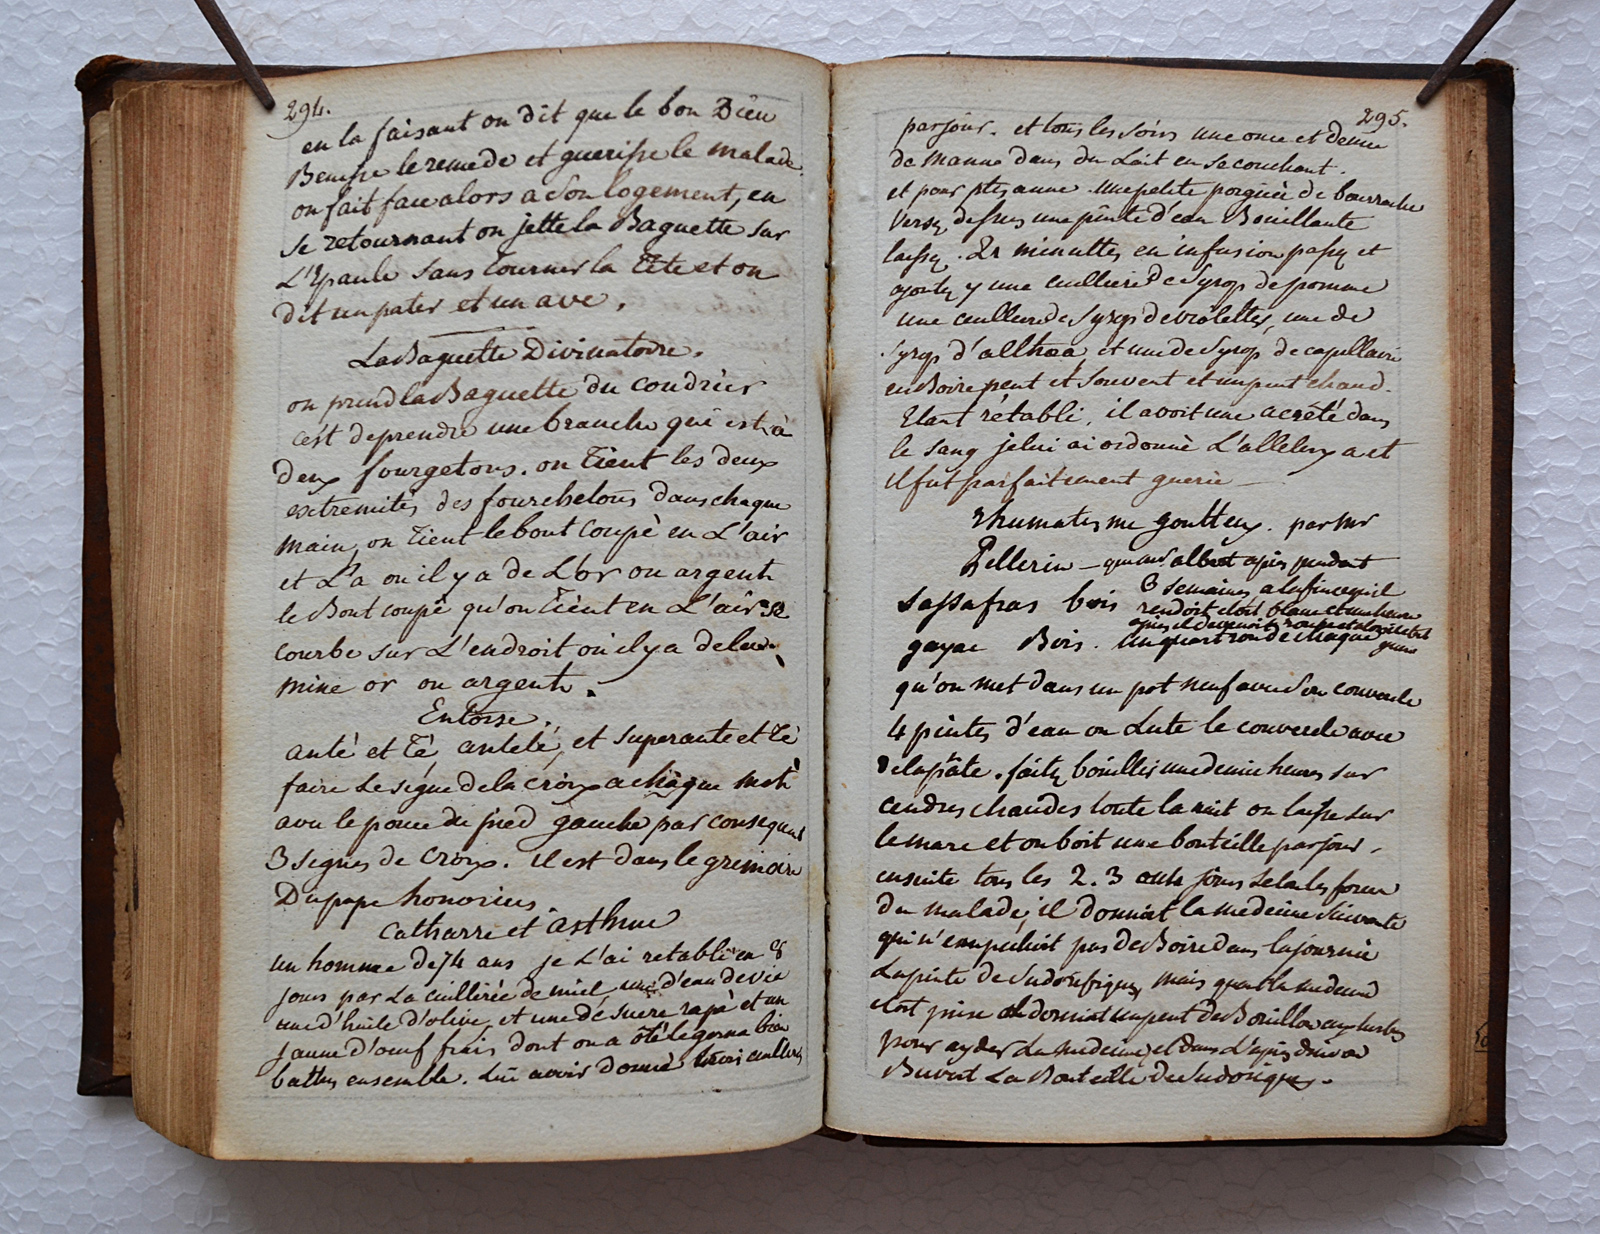 294.
en la faisant on dit que le bon Dieu
Benisse le remede et guerisse le malade
on fait face alors a son logement, en
se retournant on jette la Baguette sur
L'Epaule sans tourner la Tête et on
dit un pater et un ave.
La Baguette Divinatoire.
on prend la Baguette du coudrier
c'est de prendre une branche qui est à
deux fourgetons. on Tient les deux
extremités des fourchetons dans chaque
main, on Tient le bout coupé en L'air
et L'a ou il y a de L'or ou argent
le Bout coupé qu'on Tient en L'air se
courbe sur L'endroit ou il y a de la
mine or ou argent.
Entorse.
anté et té, antété, et superante et té
faire le signe de la croix a chaque mot
avec le pouce du pied gauche par consequent
3 signes de croix. il est dans le grimoire
Du pape honorius.
Catharre et asthme
un homme de 74 ans je L'ai retabli en 8
jours par La cuillerée de miel, une d'eau de vie
une d'huile d'olive, et une de sucre rapé et un
jaune d'oeuf frais dont on a ôté le germe bien
battus ensemble. Lui avoir donné trois cuillers
295.
par jour. et tous les soirs une once et demie
de manne dans du Lait en se couchant.
et pour ptisanne une petite poignée de bourrache
versez dessus une pinte d'eau Bouillante
laissez. minuttes en infusion passez et
ajoutez y une cuilliere de Syrop de pomme
une cuillere de Syrop de violettes, une de
Syrop d'althea, et une de Syrop de capillaire
en Boire peut et souvent et un peut chaud.
Etant rétabli, il avoit une acreté dans
le sang je lui ai ordonné L'alleluya et
il fut parfaitement guerie
Rhumatisme goutteux. par Mr
Pellerin - pendant
sassafras bois 3 semaines, a la fin
rendoit etoit blanc et une heure
apres il devenoit rouge et
gayac Bois. un quarteron de chaque
qu'on met dans un pot neuf avec son couvercle
4 pintes d'eau on Lute le couvercle avec
de la pâte. faites bouillir une demie heure sur
cendres chaudes toute la nuit on laisse sur
le marc et on boit une bouteille par jour.
ensuite tous les 2. 3 jours selon les forces
du malade, il donnoit la medecine suivante
qui n'empechoit pas de Boire dans la journée
La pinte de sudorifique, mais quand la medecine
etoit prise il donnoit un peut de Bouillon aux herbes
pour ayder La medecine, et dans L'apres diner on
Buvoit La Bouteille de sudorifique.